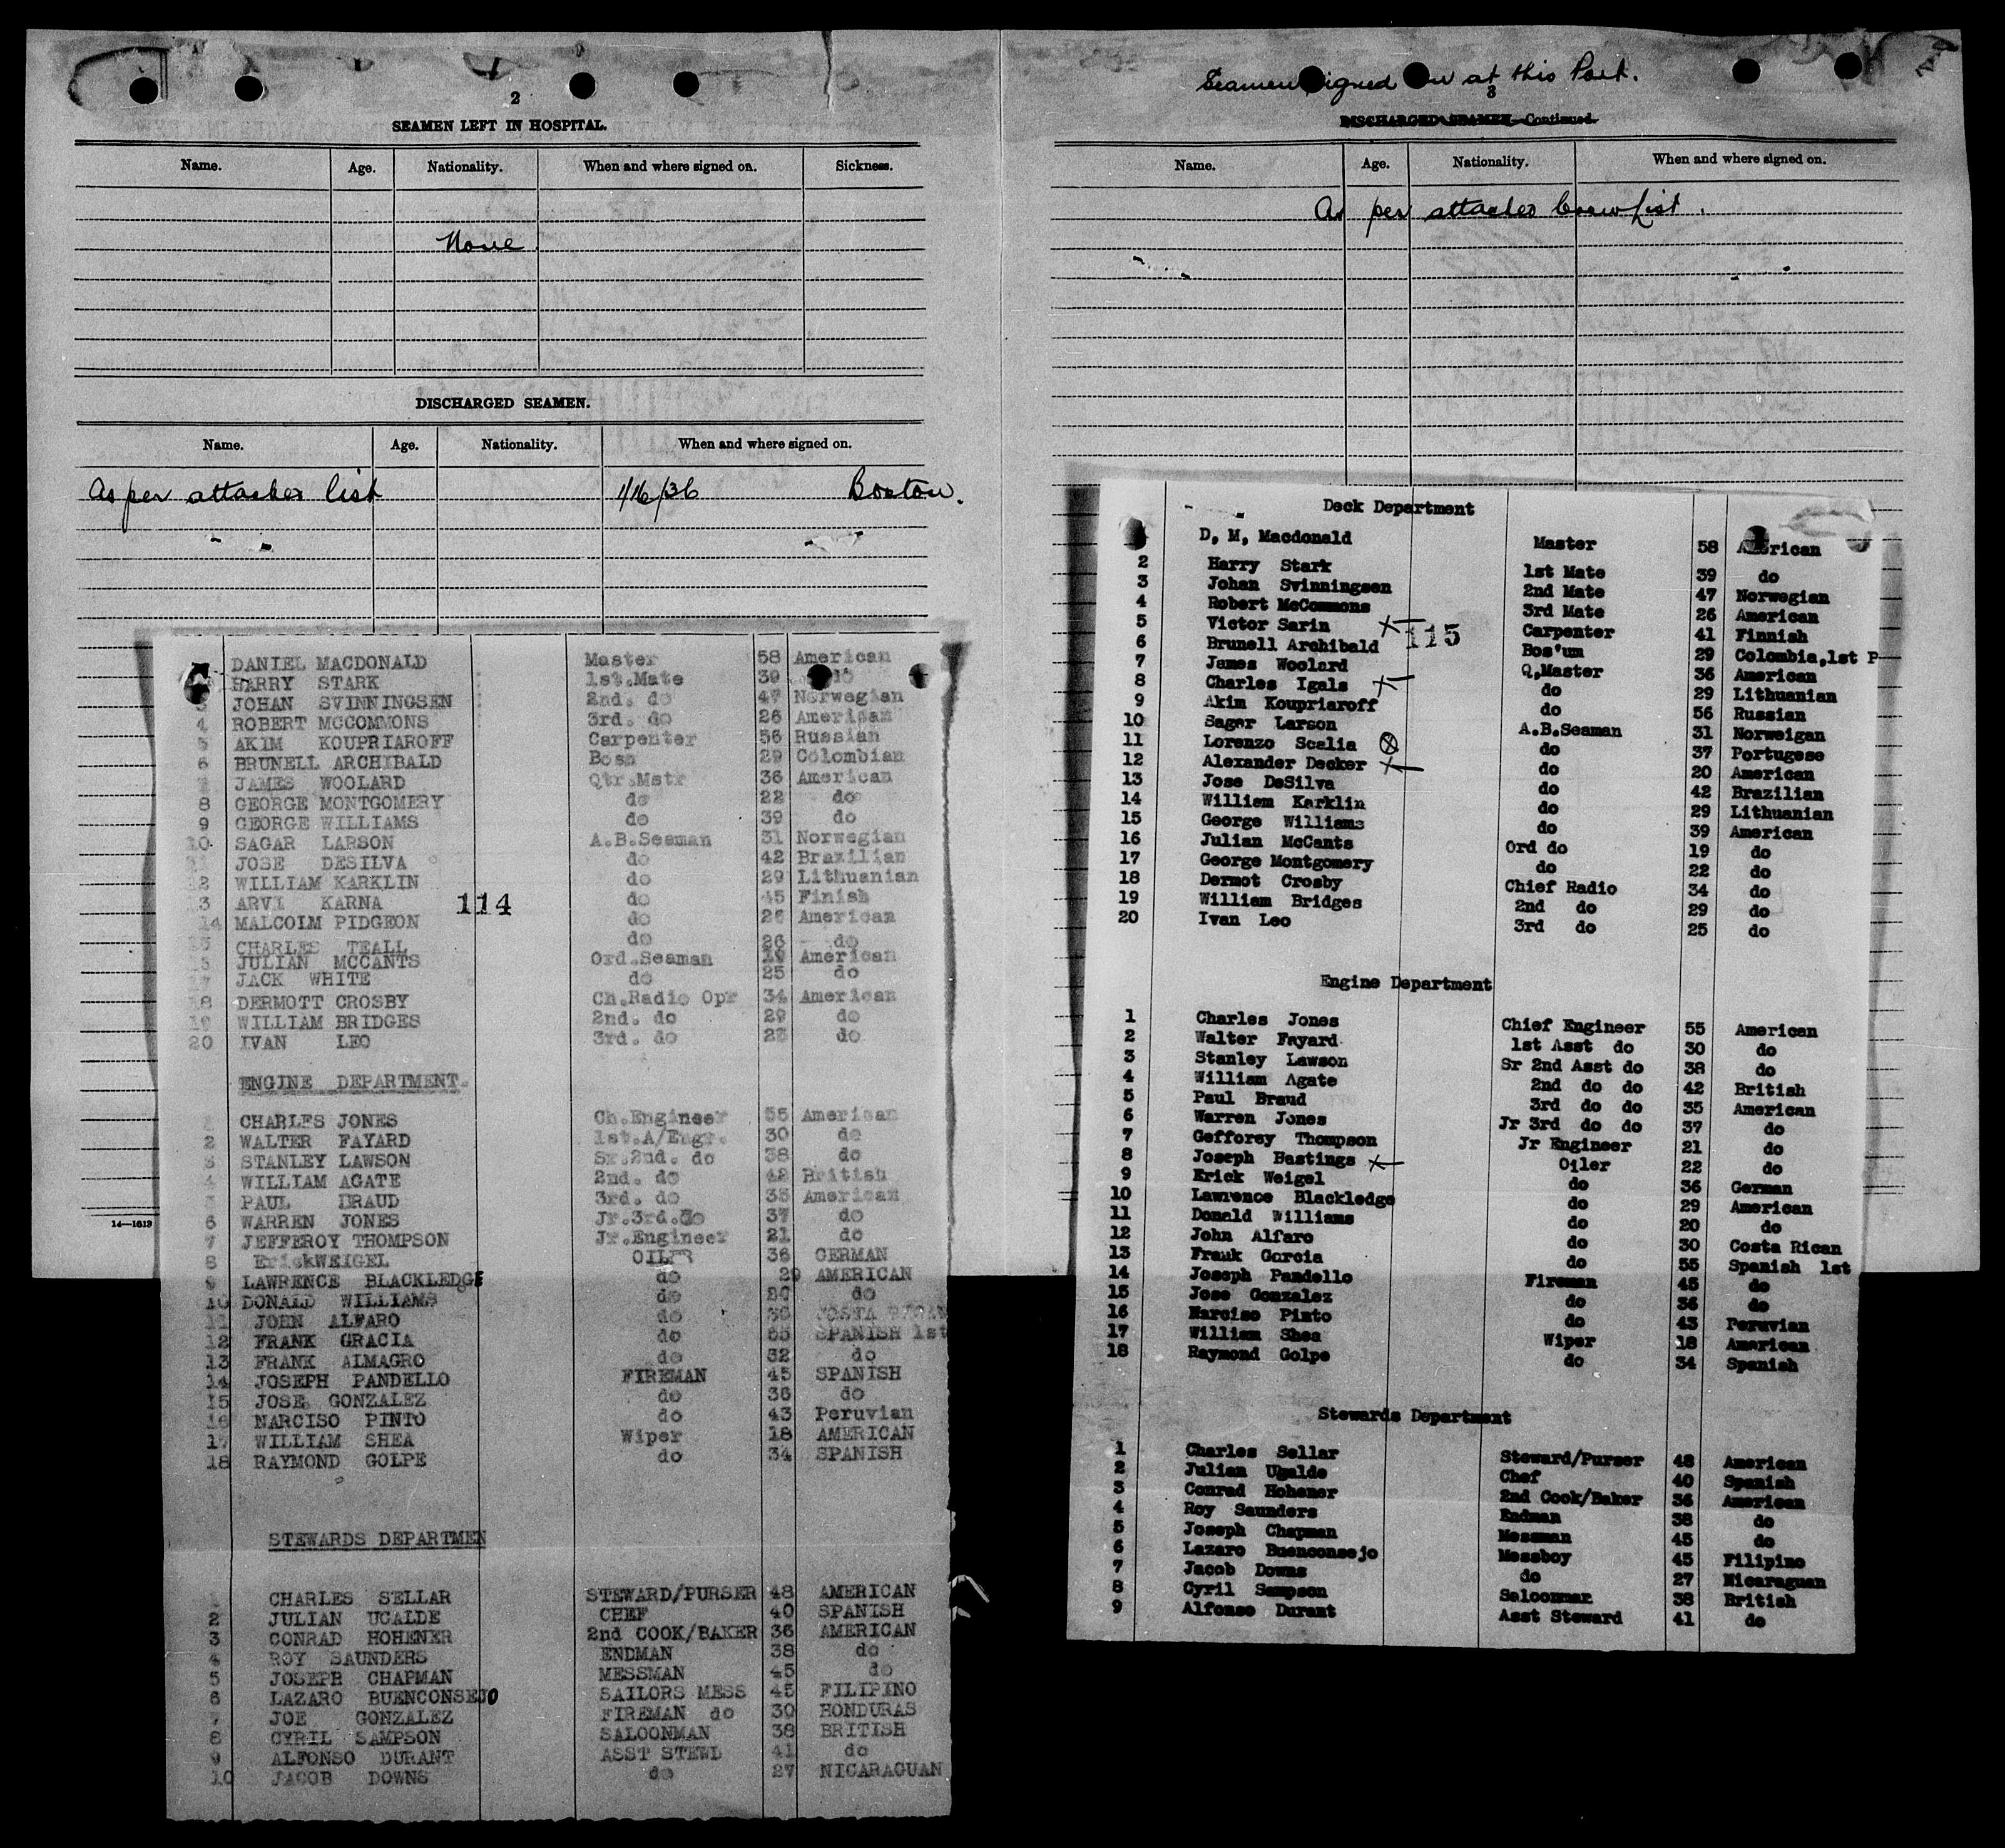 2
SEAMEN LEFT IN HOSPITAL.
Name. Age. Nationality. When and where signed on. Sickness.
None
DISCHARGED SEAMEN.
Name. Age. Nationality. When and where signed on.
As per attached list 1/16/36 Boston.
DANIEL MACDONALD Master 58 American
HARRY STARK 1st.Mate 39 do
3 JOHAN SVINNINGSEN 2nd. do 47 Norwegian
4 ROBERT MCCOMMONS 3rd. do 26 American
5 AKIM KOUPRIAROFF Carpenter 56 Russian
6 BRUNELL ARCHIBALD Bosn 29 Colombian
7 JAMES WOOLARD Qtr.Mstr 36 American
8 GEORGE MONTGOMERY do 22 do
9 GEORGE WILLIAMS do 39 do
10 SAGAR LARSON A.B.Seaman 31 Norwegian
11 JOSE DESILVA do 42 Brazilian
12 WILLIAM KARKLIN do 29 Lithuanian
13 ARVI KARNA do 45 Finish
114
14 MALCOLM PIDGEON do 26 American
15 CHARLES TEALL do 26 do
16 JULIAN MCCANTS Ord.Seaman 19 American
17 JACK WHITE do 25 do
18 DERMOTT CROSBY Ch.Radio Opr 34 American
19 WILLIAM BRIDGES 2nd. do 29 do
20 IVAN LEO 3rd. do 23 do
ENGINE DEPARTMENT.
1 CHARLES JONES Ch.Engineer 55 American
2 WALTER FAYARD 1st.A/Engr. 30 do
3 STANLEY LAWSON Sr.2nd. do 38 do
4 WILLIAM AGATE 2nd. do 42 British
5 PAUL BRAUD 3rd. do 35 American
6 WARREN JONES Jr.3rd.do 37 do
7 JEFFEROY THOMPSON Jr.Engineer 21 do
8 ErickWEIGEL OILER 36 GERMAN
9 LAWRENCE BLACKLEDGE do 29 AMERICAN
10 DONALD WILLIAMS do 20 do
11 JOHN ALFARO do 30 COSTA RICAN
12 FRANK GRACIA do 55 SPANISH 1st
13 FRANK ALMAGRO do 32 do
14 JOSEPH PANDELLO FIREMAN 45 SPANISH
15 JOSE GONZALEZ do 36 do
16 NARCISO PINTO do 43 Peruvian
17 WILLIAM SHEA Wiper 18 AMERICAN
18 RAYMOND GOLPE do 34 SPANISH
STEWARDS DEPARTMEN
1 CHARLES SELLAR STEWARD/PURSER 48 AMERICAN
2 JULIAN UCALDE CHEF 40 SPANISH
3 CONRAD HOHENER 2nd COOK/BAKER 36 AMERICAN
4 ROY SAUNDERS ENDMAN 38 do
5 JOSEPH CHAPMAN MESSMAN 45 do
6 LAZARO BUENCONSEJO SAILORS MESS 45 FILIPINO
7 JOE GONZALEZ FIREMAN do 30 HONDURAS
8 CYRIL SAMPSON SALOONMAN 38 BRITISH
9 ALFONSO DURANT ASST STEWD 41 do
10 JACOB DOWNS do 27 NICARAGUAN
14—1613
Seamen signed on at this Port.
3
DISCHARGED SEAMEN—Continued.
Name. Age. Nationality. When and where signed on.
As per attached Crew List.
Deck Department
D, M, Macdonald Master 58 American
2 Harry Stark 1st Mate 39 do
3 Johan Svinningsen 2nd Mate 47 Norwegian
4 Robert McCommons 3rd Mate 26 American
5 Victor Sarin Carpenter 41 Finnish
115
6 Brunell Archibald Bos'um 29 Colombia,1st P
7 James Woolard Q,Master 36 American
8 Charles Igals do 29 Lithuanian
9 Akim Koupriaroff do 56 Russian
10 Sager Larson A.B.Seaman 31 Norweigan
11 Lorenzo Scalia do 37 Portugese
12 Alexander Decker do 20 American
13 Jose DeSilva do 42 Brazilian
14 William Karklin do 29 Lithuanian
15 George Williams do 39 American
16 Julian McCants Ord do 19 do
17 George Montgomery do 22 do
18 Dermot Crosby Chief Radio 34 do
19 William Bridges 2nd do 29 do
20 Ivan Leo 3rd do 25 do
Engine Department
1 Charles Jones Chief Engineer 55 American
2 Walter Fayard 1st Asst do 30 do
3 Stanley Lawson Sr 2nd Asst do 38 do
4 William Agate 2nd do do 42 British
5 Paul Braud 3rd do do 35 American
6 Warren Jones Jr 3rd do do 37 do
7 Gefforey Thompson Jr Engineer 21 do
8 Joseph Hastings Oiler 22 do
9 Erick Weigel do 36 German
10 Lawrence Blackledge do 29 American
11 Donald Williams do 20 do
12 John Alfaro do 30 Costa Rican
13 Frank Garcia do 55 Spanish 1st
14 Joseph Pandello Fireman 45 do
15 Jose Gonzalez do 36 do
16 Narciso Pinto do 43 Peruvian
17 William Shea Wiper 18 American
18 Raymond Golpe do 34 Spanish
Stewards Department
1 Charles Sellar Steward/Purser 48 American
2 Julian Ugalde Chef 40 Spanish
3 Conrad Hohener 2nd Cook/Baker 36 American
4 Roy Saunders Endman 38 do
5 Joseph Chapman Messman 45 do
6 Lazaro Buenconsejo Messboy 45 Filipino
7 Jacob Downs do 27 Nicaraguan
8 Cyril Sampson Saloonman 38 British
9 Alfonso Durant Asst Steward 41 do